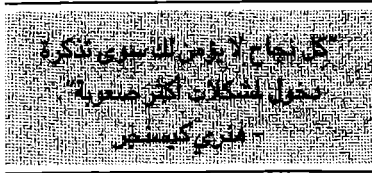 "كل نجاح لا يؤمن لك سوى تذكرة
دخول لمشكلات أكثر صعوبة".
- هنري كيسنجر -